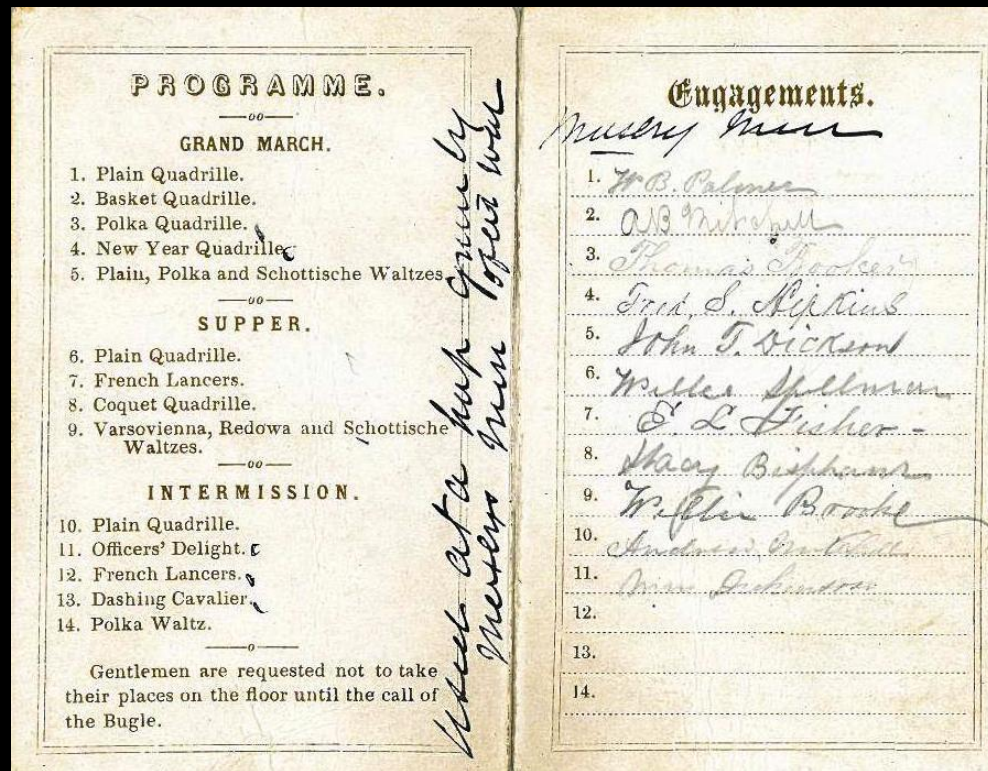 PROGRAMME.
GRAND MARCH.
1. Plain Quadrille.
2. Basket Quadrille.
3. Polka Quadrille.
4. New Year Quadrille.
5. Plain, Polka and Schottische Waltzes.
SUPPER.
6. Plain Quadrille.
7. French Lancers.
8. Coquet Quadrille.
9. Varsovienna, Redowa and Schottische
Waltzes.
INTERMISSION.
10. Plain Quadrille.
11. Officers' Delight.
12. French Lancers.
13. Dashing Cavalier.
14. Polka Waltz.
Gentlemen are requested not to take
their places on the floor until the call of
the Bugle.
Used at a hop given by
Men
Engagements.
Men
1. W. B. Palmer
2. A B Mitchell
3. Thomas Brooke
4. Fred. S. Hipkins
5. John T. Dickson
6. Willie Spillman
7. E. L. Fisher -
8. Stacy Bispham
9. Willie Brooke
10. Andrew Mitchell
11. Dickinson
12.
13.
14.